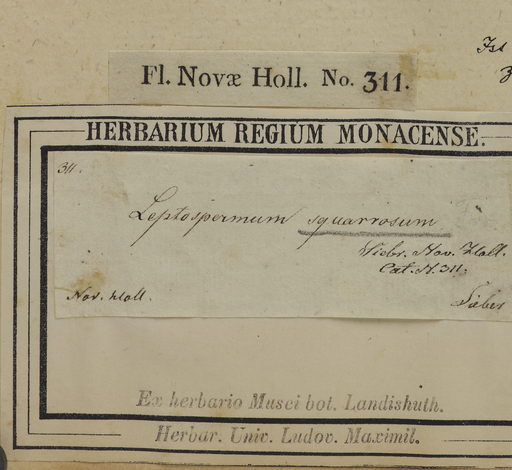 Fl. Novæ Holl. No. 311.
HERBARIUM REGIUM MONACENSE.
311.
Leptospermum squarrosum
Siebr. Nov. Holl.
Cat. N. 311.
Nov. Holl.
Sieber
Ex herbario Musei bot. Landishuth.
Herbar. Univ. Ludov. Maximil.